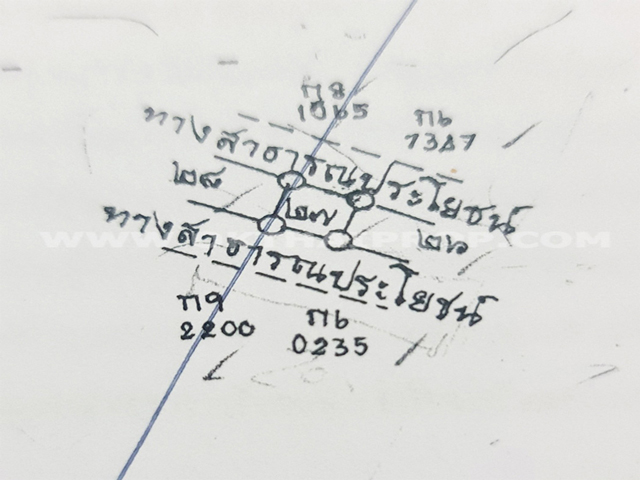 ก๘
1065
ก๖
7347
ทางสาธารณประโยชน์
๒๘
๒๗
๒๖
ทางสาธารณประโยชน์
ก๑
2200
ก๖
0235